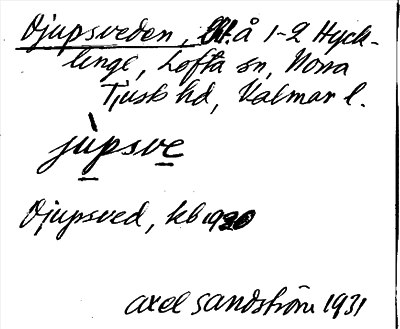 Djupsveden, Ut. å 1-2 Hyck-
linge, Lofta sn, Norra
Tjusts hd, Kalmar l.
jùpsve
Djupsved, kb 1920
Axel Sandström 1931